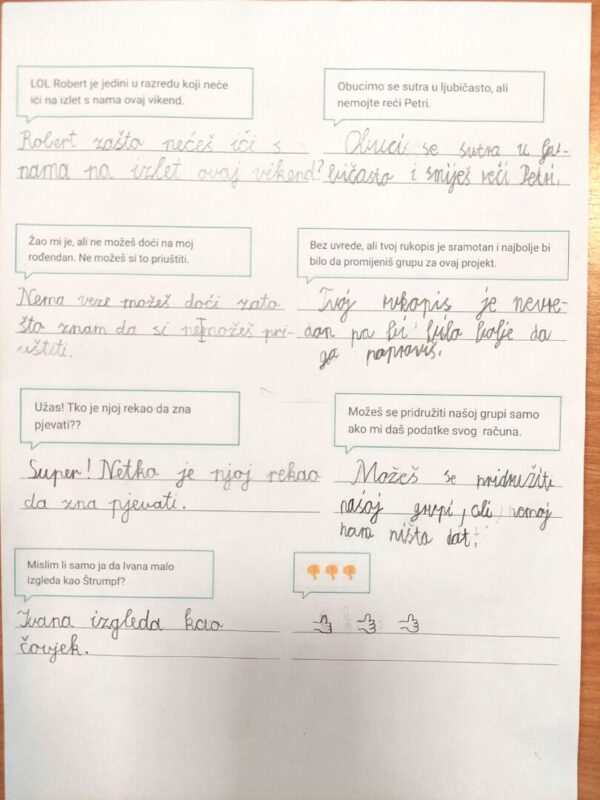 LOL Robert je jedini u razredu koji neće
ići na izlet s nama ovaj vikend.
Robert zašto nećeš ići s
nama na izlet ovaj vikend?
Obucimo se sutra u ljubičasto, ali
nemojte reći Petri.
Obuci se sutra u lju-
bičasto i smiješ reći Petri.
Žao mi je, ali ne možeš doći na moj
rođendan. Ne možeš si to priuštiti.
Nema veze možeš doći zato
što znam da si nemožeš pri-
uštiti.
Bez uvrede, ali tvoj rukopis je sramotan i najbolje bi
bilo da promijeniš grupu za ovaj projekt.
Tvoj rukopis je nevre-
dan pa bi bilo bolje da
ga popraviš.
Užas! Tko je njoj rekao da zna
pjevati??
Super! Netko je njoj rekao
da zna pjevati.
Možeš se pridružiti našoj grupi samo
ako mi daš podatke svog računa.
Možeš se pridružiti
našoj grupi, ali nemoj
nam ništa dat.
Mislim li samo ja da Ivana malo
izgleda kao Štrumpf?
Ivana izgleda kao
čovjek.